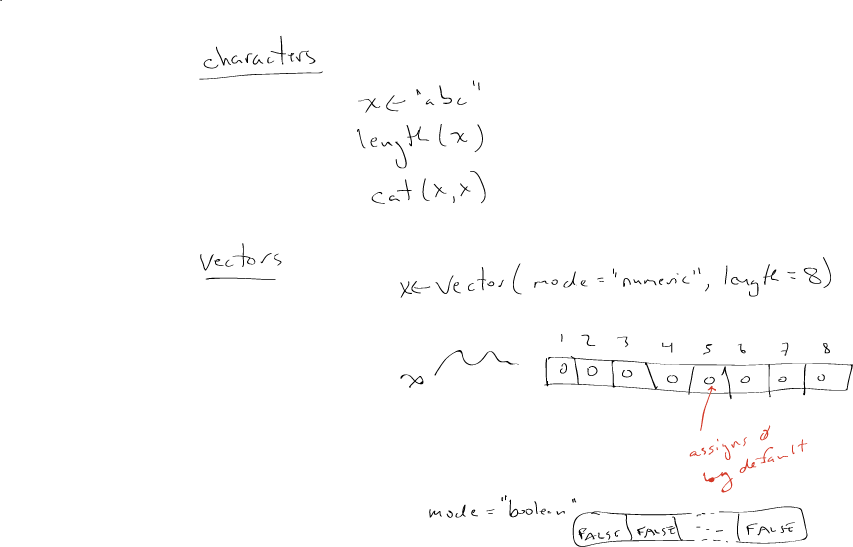 characters
x ← "abc"
length(x)
cat(x,x)
vectors
x ← vector(mode = "numeric", length = 8)
1 2 3 4 5 6 7 8
x 0 0 0 0 0 0 0 0
assigns 0
by default
mode = "boolean"
FALSE FALSE --- FALSE